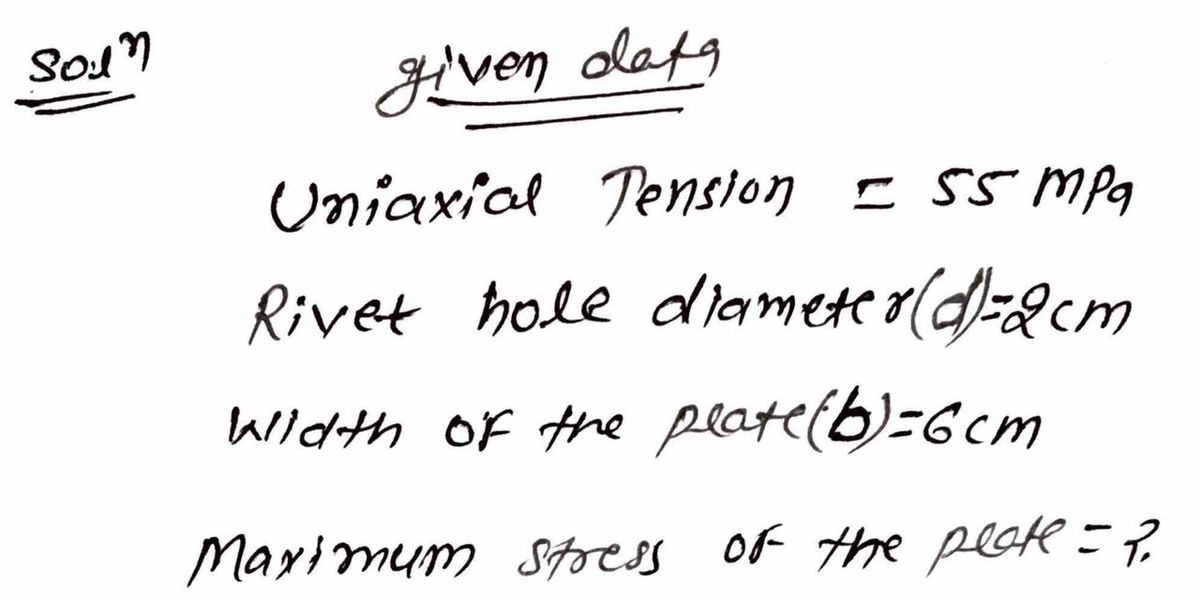 Solⁿ given data
Uniaxial Tension = 55 MPa
Rivet hole diameter(d)=2cm
Width of the plate(b)=6cm
Maximum stress of the plate = ?